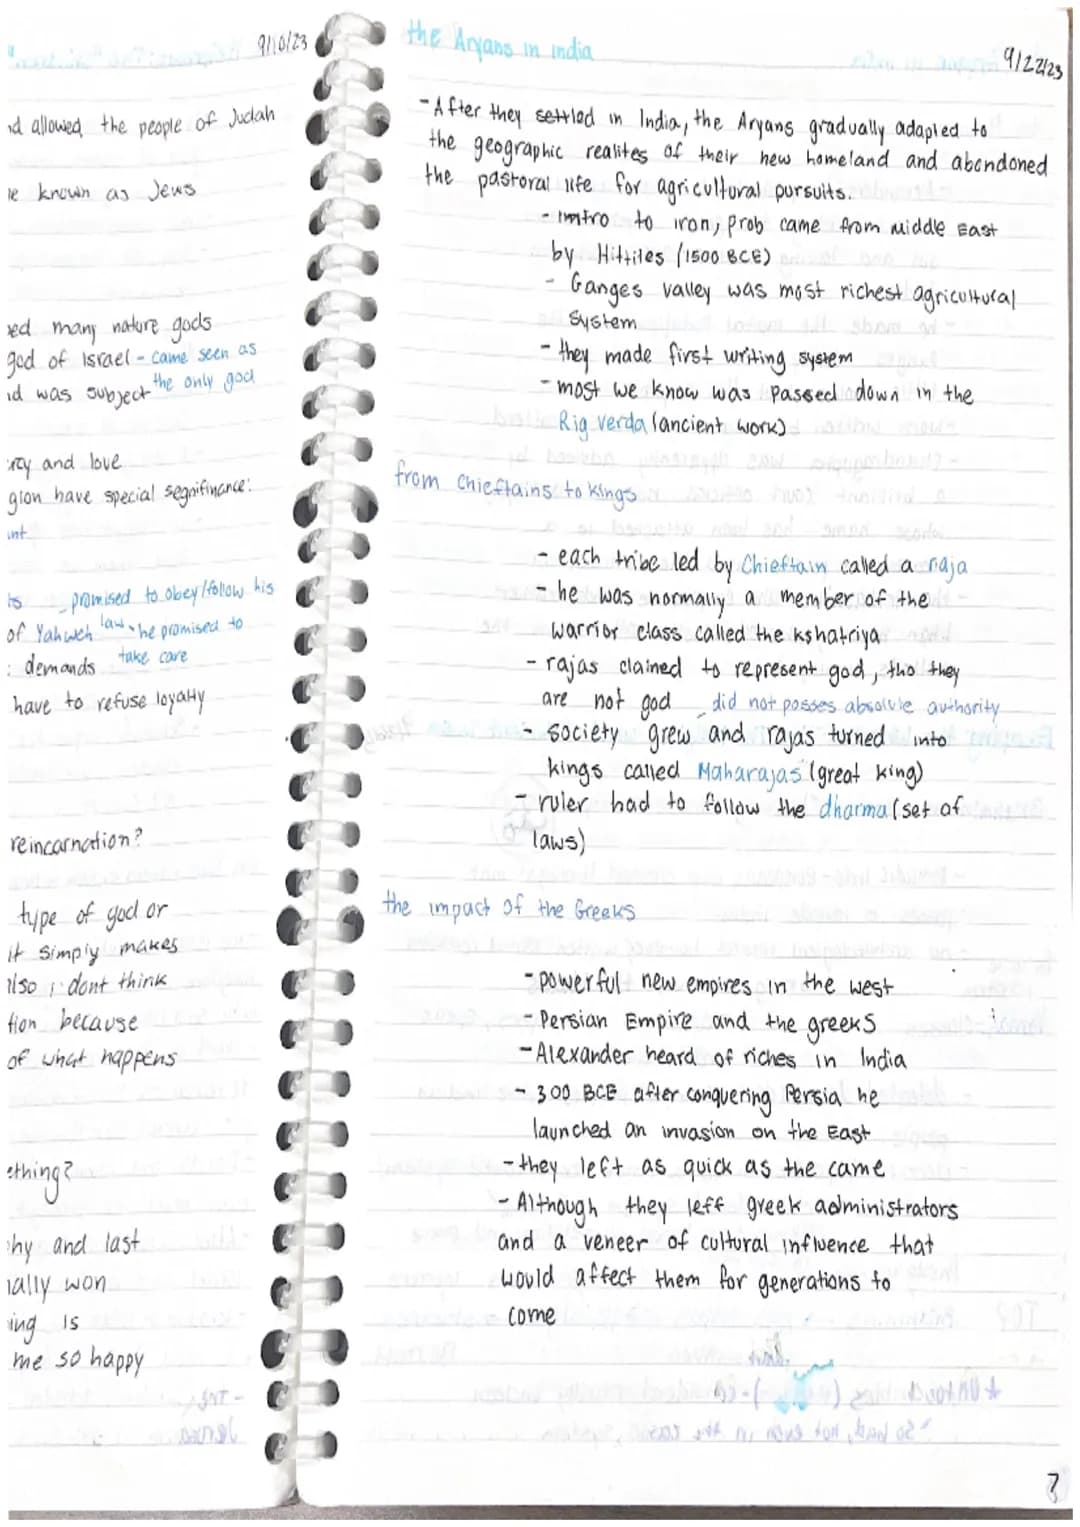 9/10/23
nd allowed the people of Judah
e known as Jews
ed many nature gods
god of Israel - came seen as
the only god
nd was subject
rcy and love
gion have special segnifinance:
nt
ts - promised to obey/follow his
of Yahweh law - he promised to
: demands take care
have to refuse loyalty
reincarnation?
type of god or
it simply makes
also i dont think
tion because
of what happens
ething?
hy and last
nally won
ing is
me so happy
the Aryans in india
9/22/23
- After they settled in India, the Aryans gradually adapted to
the geographic realites of their new homeland and abondoned
the pastoral life for agricultural pursuits.
- intro to iron, prob came from middle East
by Hittiles (1500 BCE)
- Ganges valley was most richest agricultural
System
- they made first writing system
- most we know was passed down in the
Rig verda (ancient work)
from Chieftains to Kings
- each tribe led by Chieftain called a raja
- he was normally a member of the
warrior class called the kshatriya
- rajas claimed to represent god, tho they
are not god - did not posses absolute authority
- society grew and rajas turned into
kings called Maharajas (great king)
- ruler had to follow the dharma (set of
laws)
the impact of the Greeks
- powerful new empires in the west
- Persian Empire and the greeks
- Alexander heard of riches in India
- 300 BCE after conquering Persia he
launched an invasion on the East
- they left as quick as the came
- Although they left greek administrators
and a veneer of cultural influence that
would affect them for generations to
come